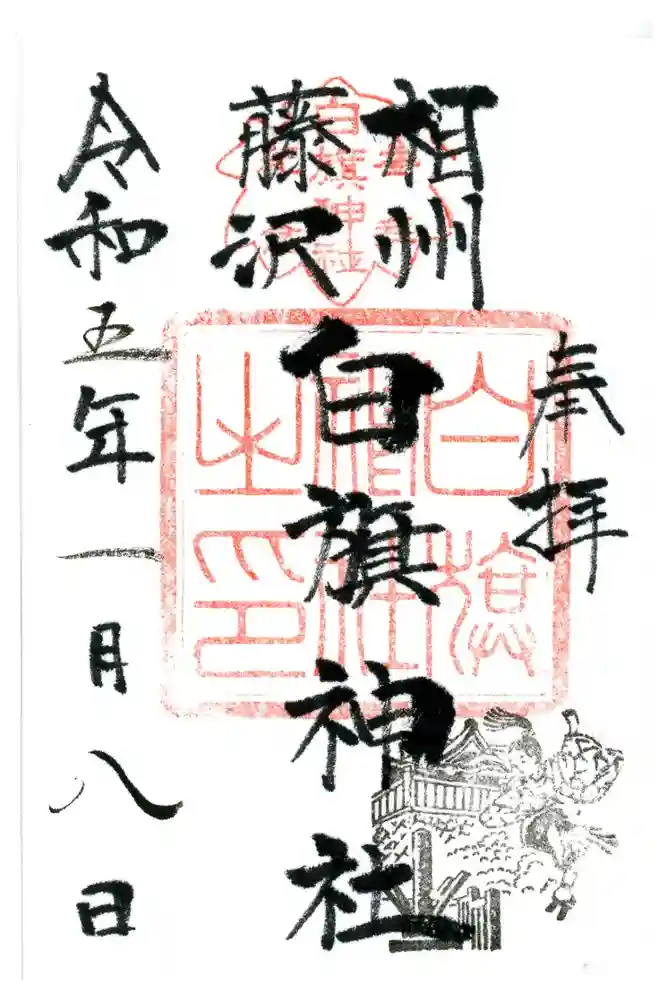 奉拝
相州
藤沢
白旗神社
令和五年一月八日
白旗神社
白旗神社之印